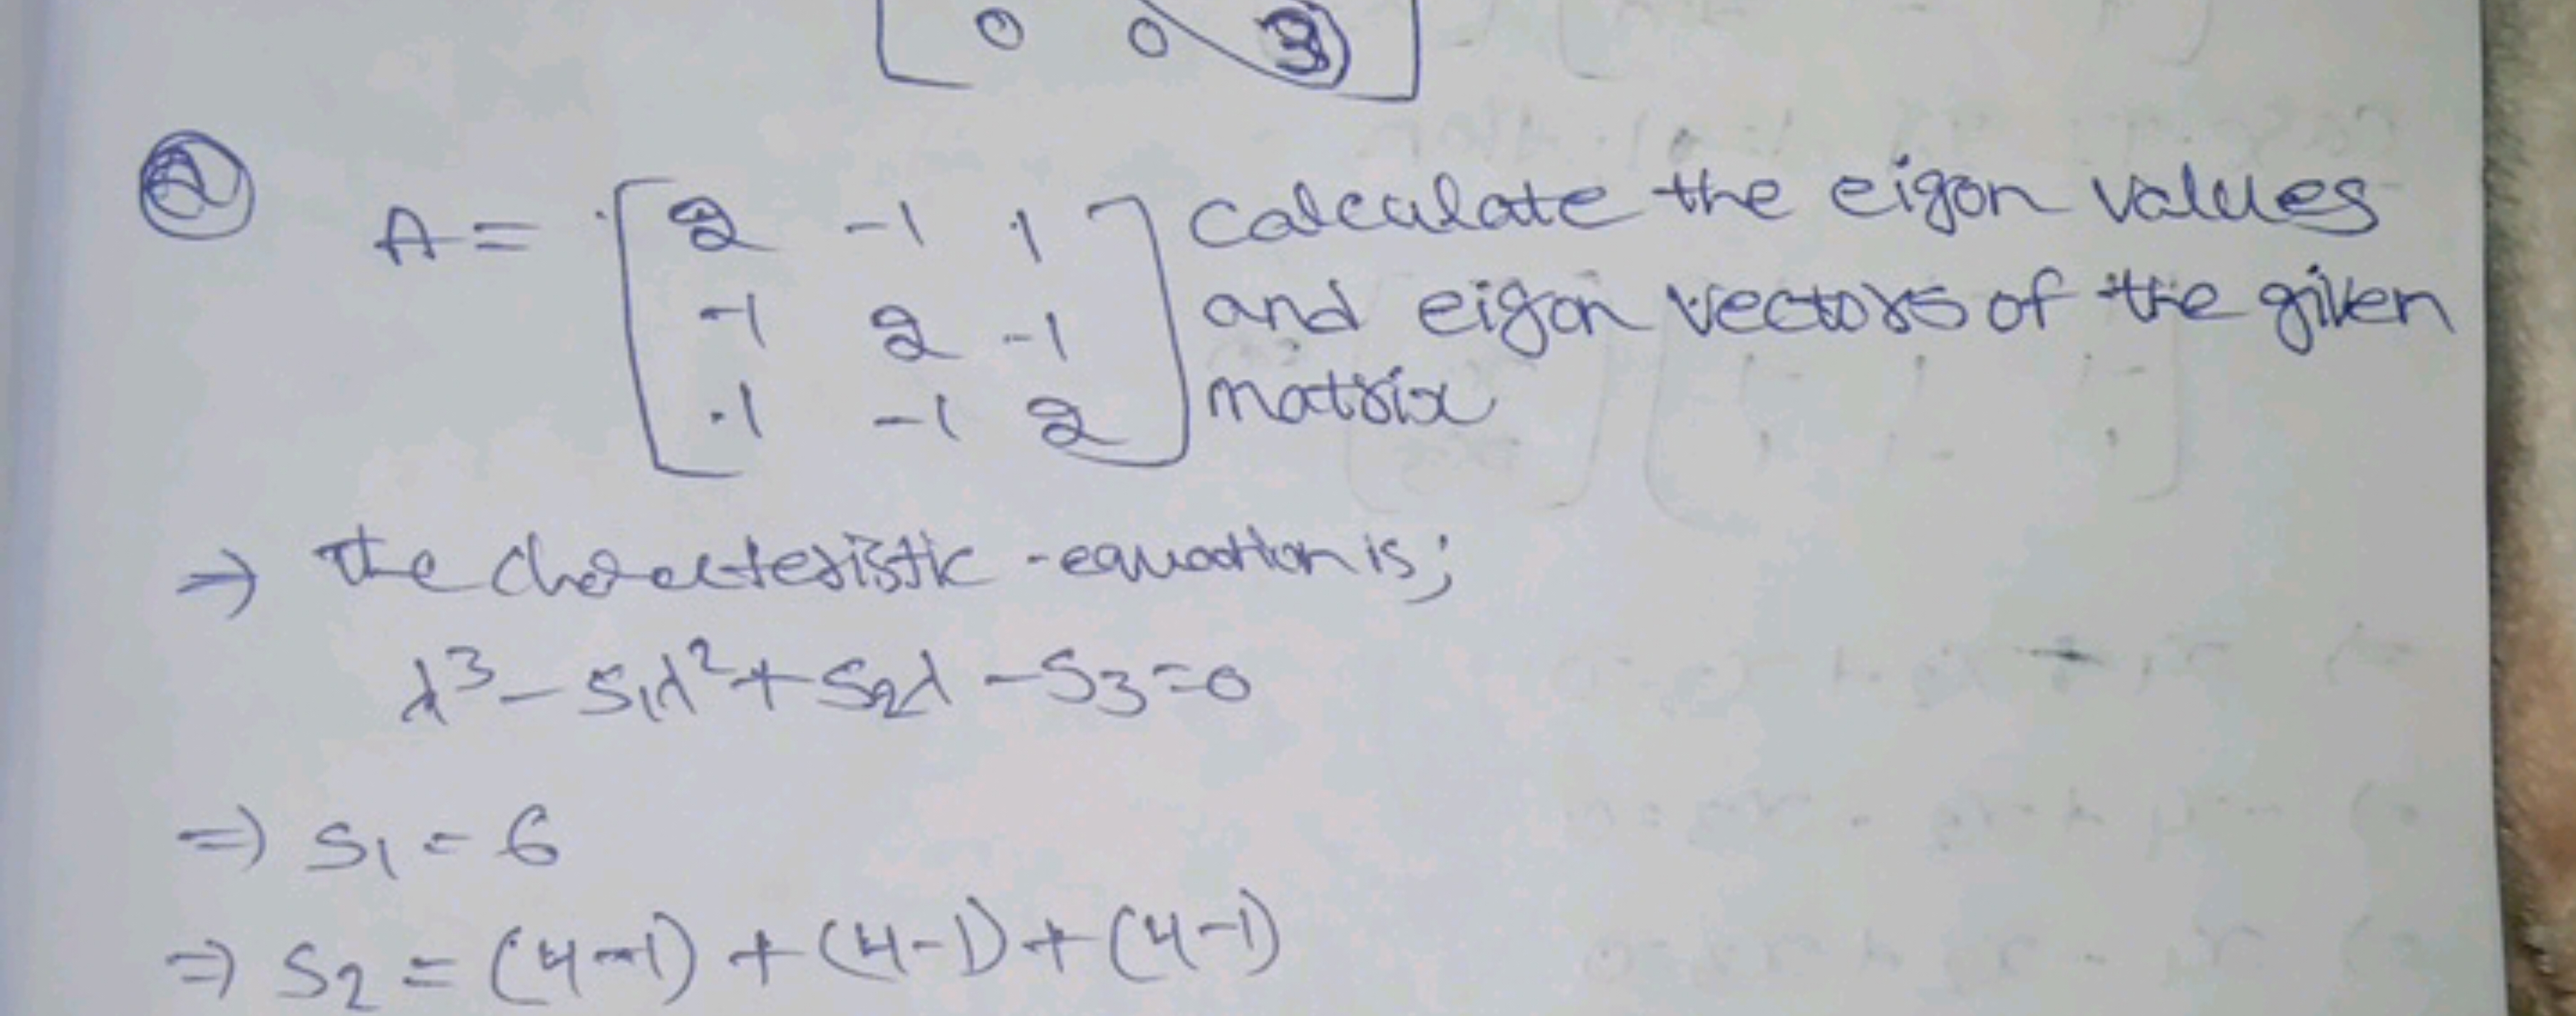 0 0 3
2
A = [ 2 -1 1 ] calculate the eigon values
[ -1 2 -1 ] and eigon vectors of the given
[ 1 -1 2 ] matrix
⇒ the charecteristic equation is;
λ³ - S₁λ² + S₂λ - S₃ = 0
⇒ S₁ = 6
⇒ S₂ = (4-1) + (4-1) + (4-1)